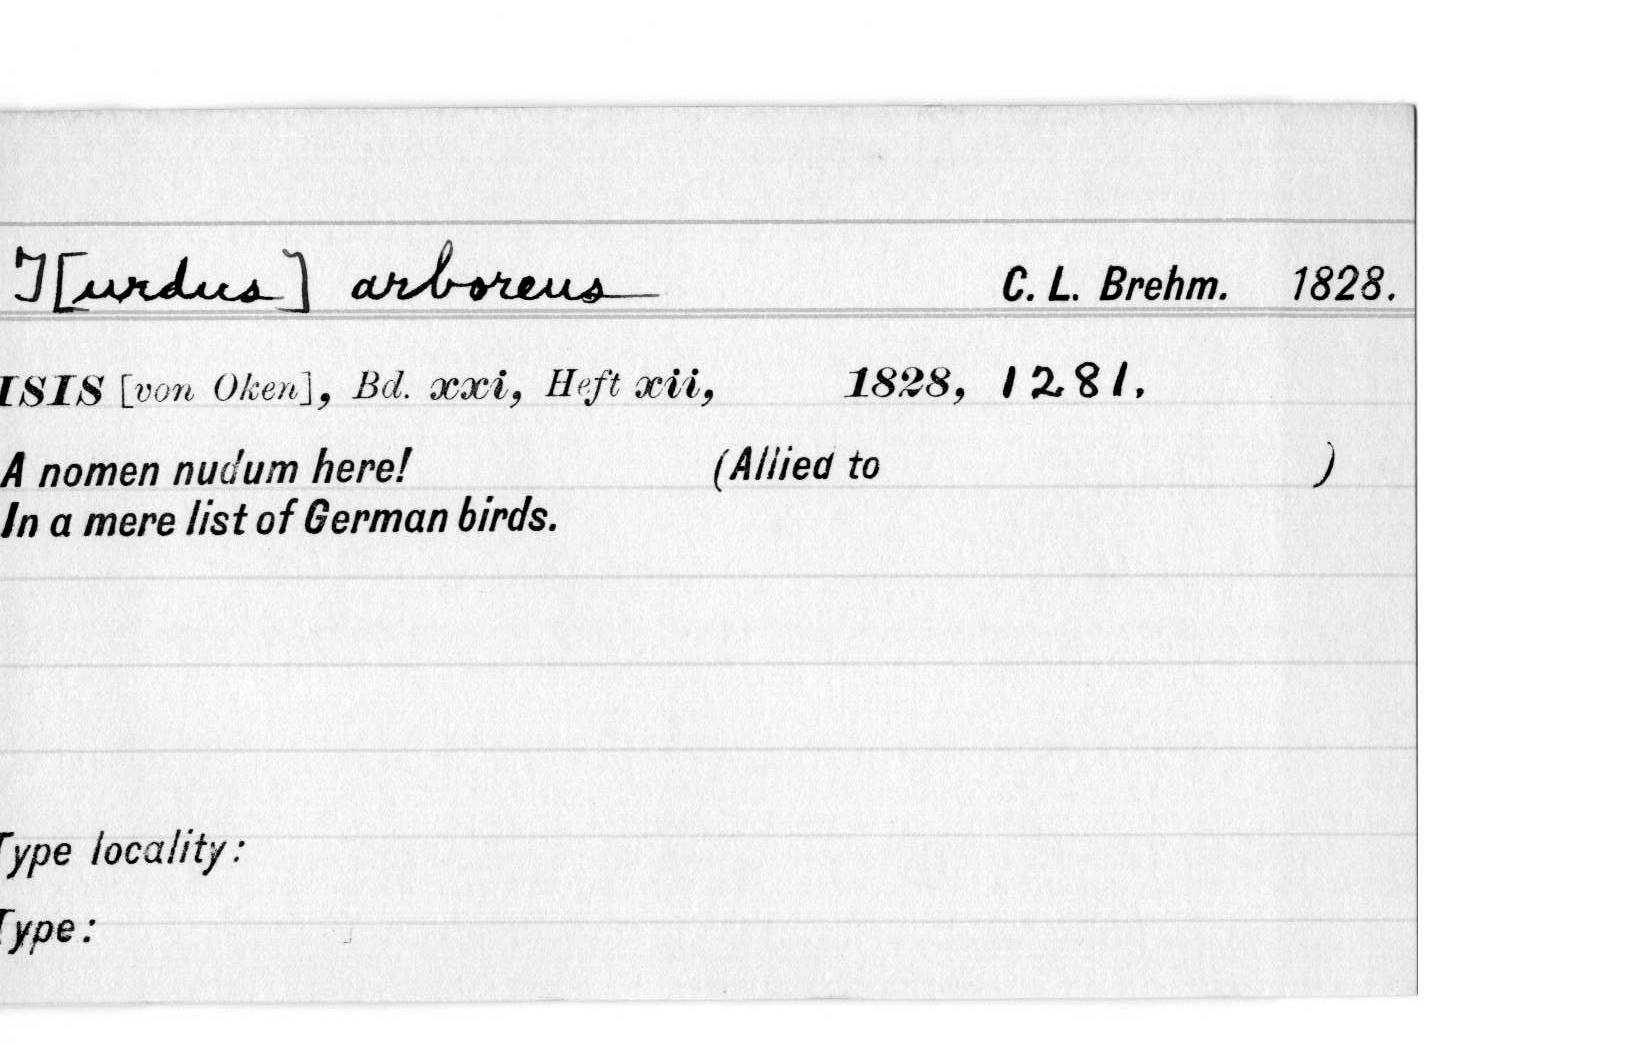 T[urdus] arboreus C. L. Brehm. 1828.
ISIS [von Oken], Bd. xxi, Heft xii, 1828, 1281.
A nomen nudum here! (Allied to )
In a mere list of German birds.
Type locality:
Type: